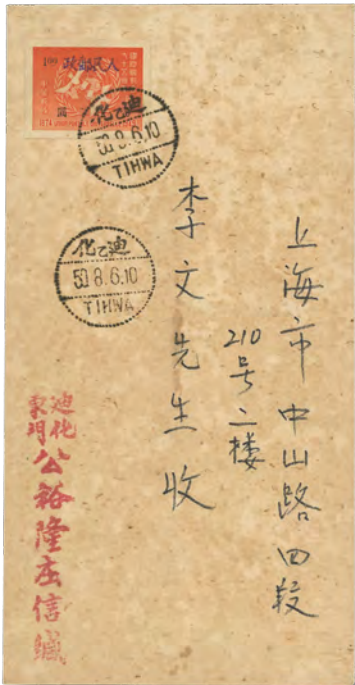 人民郵政
迪化
50.8.6.10
TIHWA
迪化
50.8.6.10
TIHWA
上海市中山路四段
210号二楼
李文先生收
迪化
東門
公裕隆庄信緘